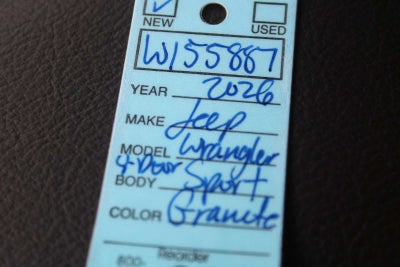 NEW USED
W155887
YEAR 2026
MAKE Jeep
MODEL Wrangler
4-Door
BODY Sport
COLOR Granite
Reorder
800-